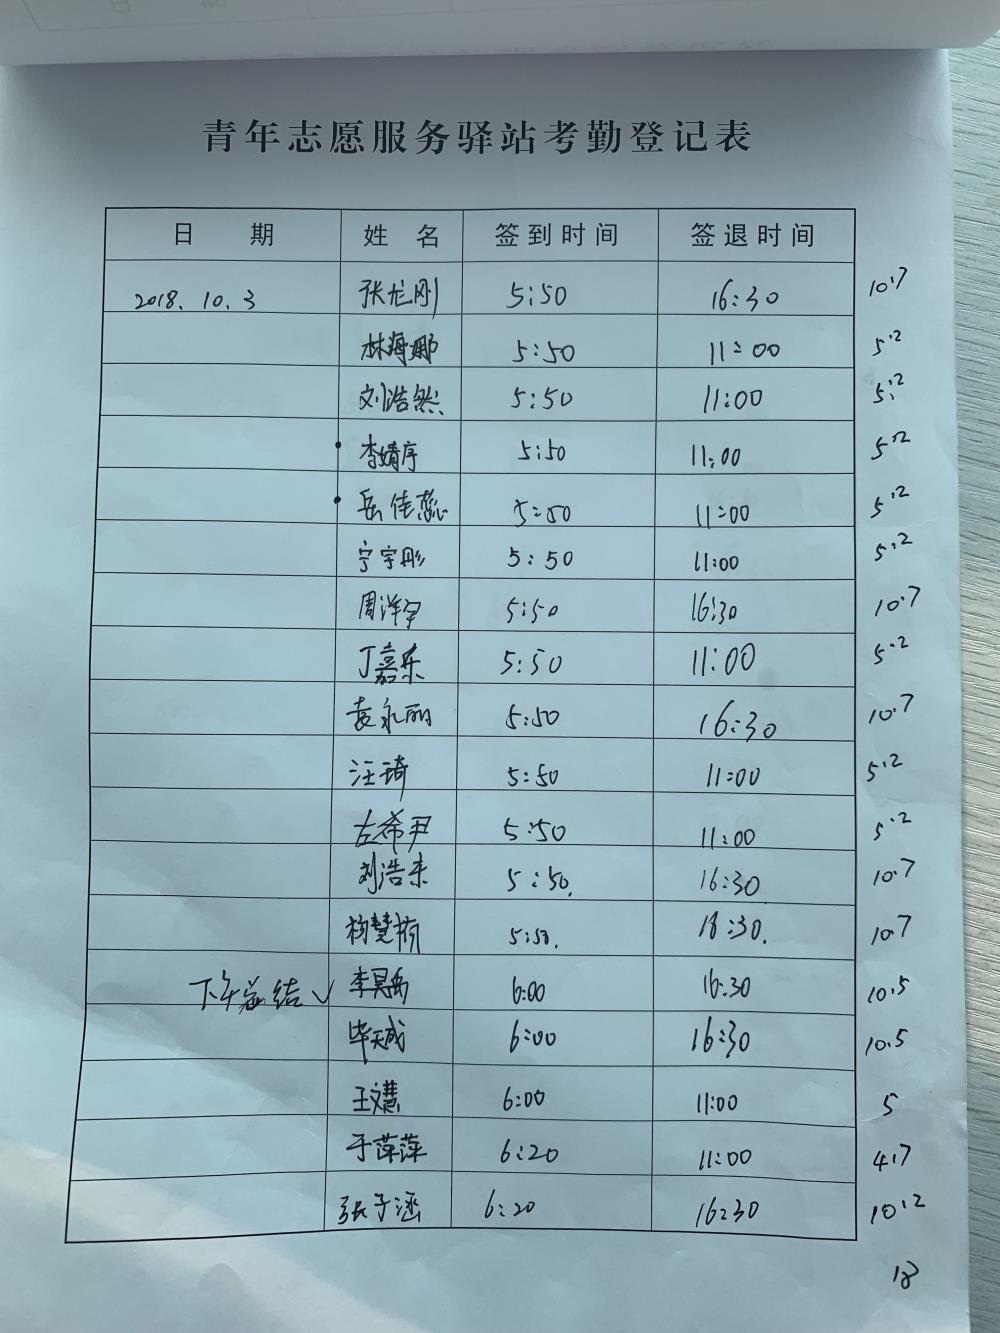 青年志愿服务驿站考勤登记表
日 期 姓 名 签到时间 签退时间
2018.10.3 张龙刚 5:50 16:30 10.7
林海娜 5:50 11:00 5.2
刘浩然 5:50 11:00 5.2
李婧序 5:50 11:00 5.2
岳佳蕊 5:50 11:00 5.2
宁宇彤 5:50 11:00 5.2
周洋宇 5:50 16:30 10.7
丁嘉乐 5:50 11:00 5.2
袁永丽 5:50 16:30 10.7
汪琦 5:50 11:00 5.2
左希尹 5:50 11:00 5.2
刘浩来 5:50. 16:30 10.7
杨慧楠 5:50. 16:30. 10.7
下午总结✓ 李昊禹 6:00 16:30 10.5
毕天成 6:00 16:30 10.5
王文慧 6:00 11:00 5
于萍萍 6:20 11:00 4.7
张子涵 6:20 16:30 10.2
18